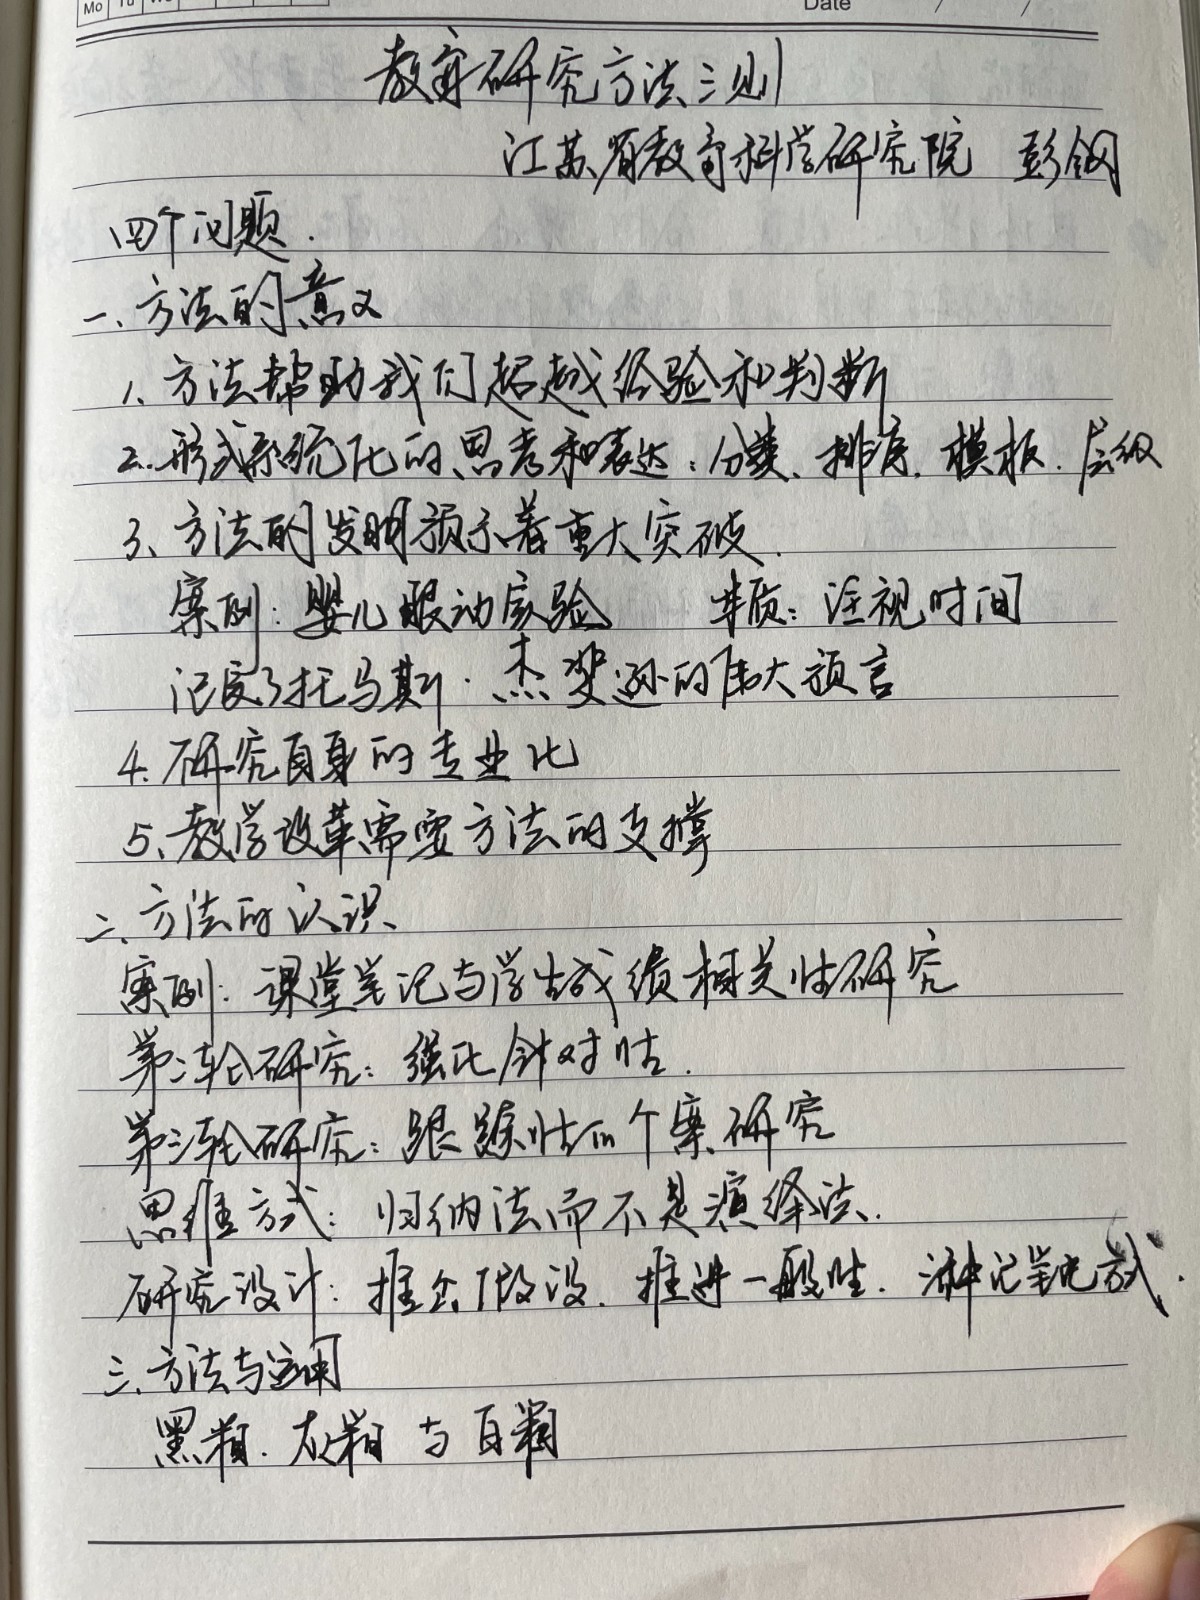 Mo Tu We
Date / /
教育研究方法三则
江苏省教育科学研究院 彭钢
四个问题.
一、方法的意义
1、方法帮助我们超越经验和判断
2、形式系统化的思考和表达：分类、排序、模板、层级
3、方法的发明预示着重大突破.
案例：婴儿眼动实验 本质：注视时间
记良了托马斯·杰斐逊的伟大预言
4、研究自身的专业化
5、教学改革需要方法的支撑
二、方法的认识
案例：课堂笔记与学生成绩相关性研究
第二轮研究：强化针对性.
第三轮研究：跟踪性的个案研究
思维方式：归纳法而不是演绎法.
研究设计：推企假设、推进一般性、记笔记方式.
三、方法与运用
黑箱、灰箱与白箱